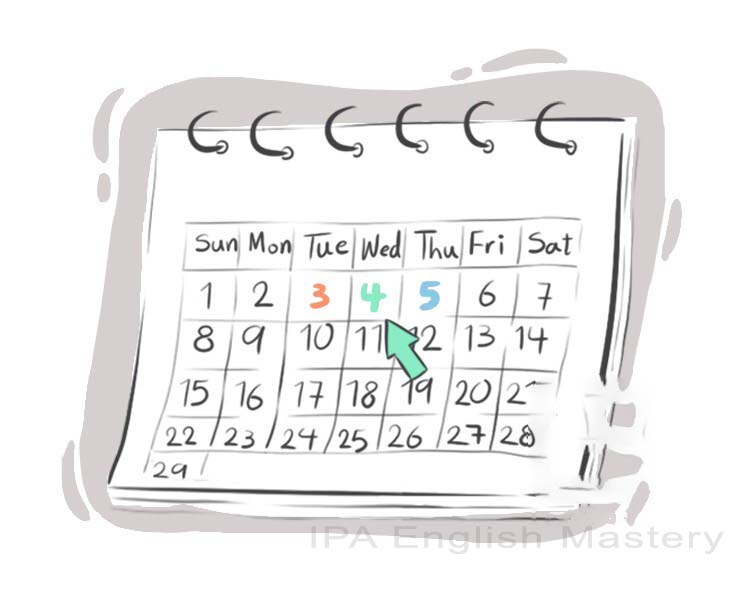 Sun Mon Tue Wed Thu Fri Sat
1 2 3 4 5 6 7
8 9 10 11 12 13 14
15 16 17 18 19 20
22 23 24 25 26 27 28
29
IPA English Mastery